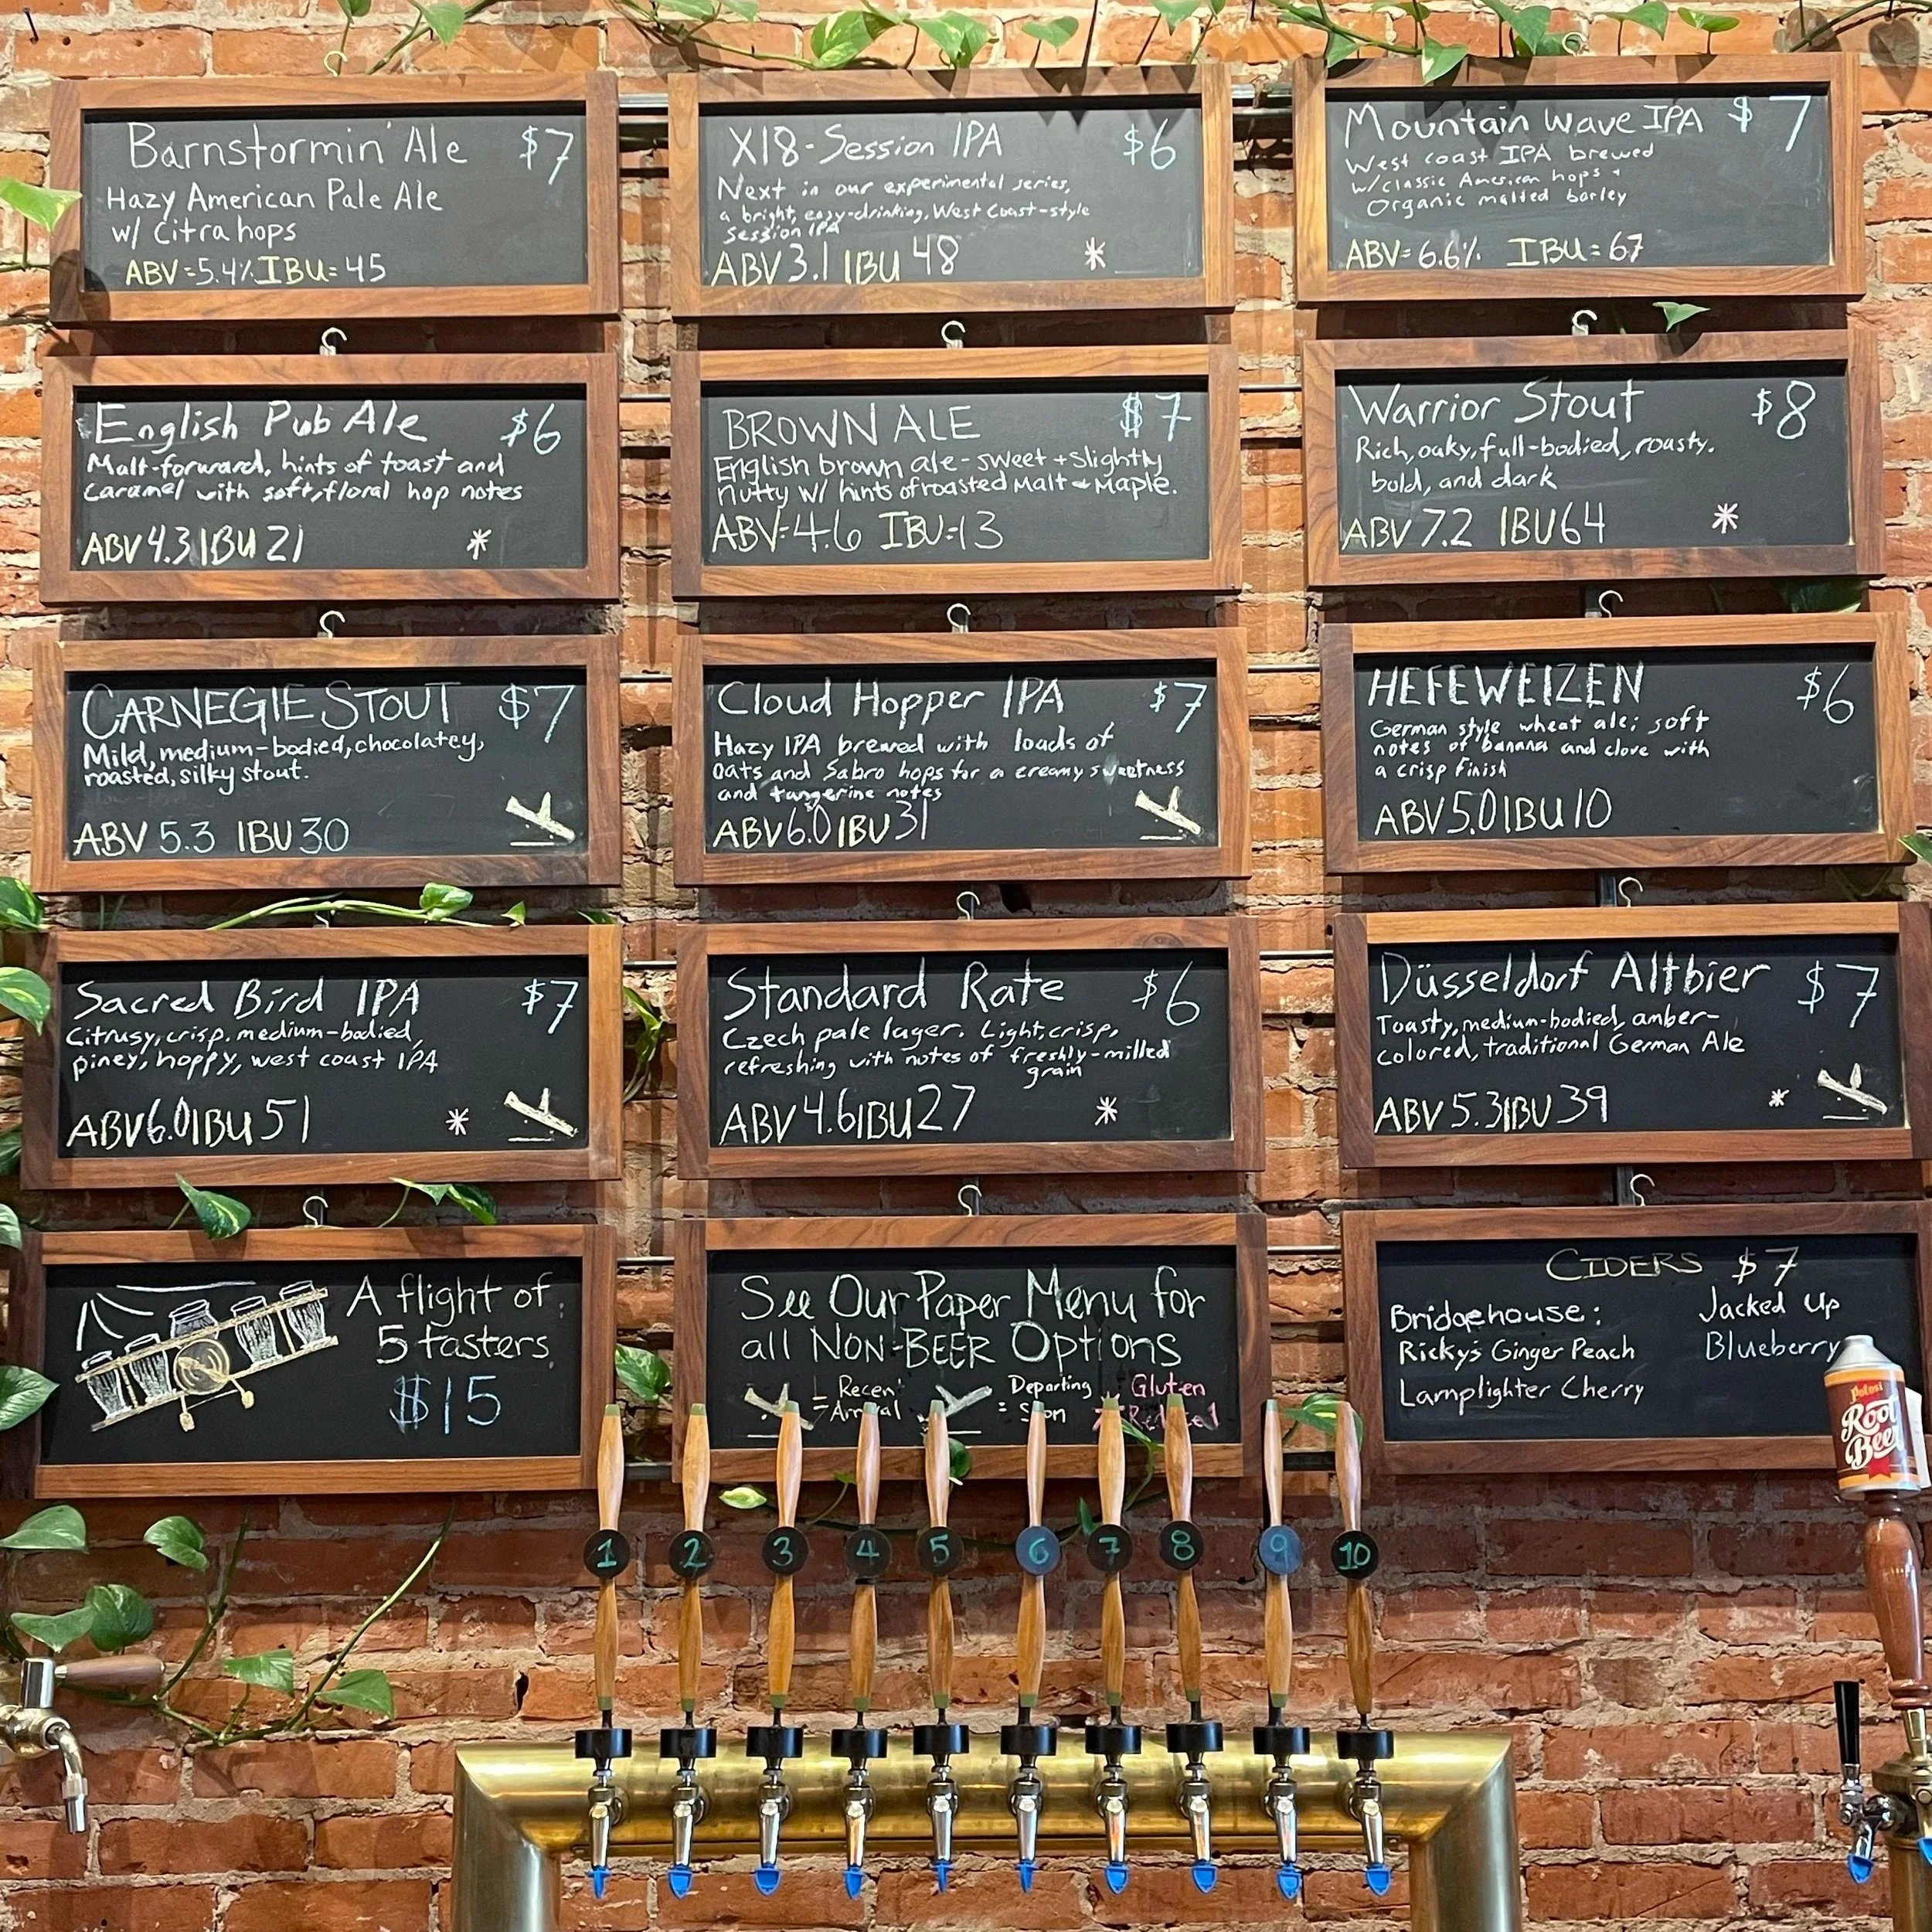 Barnstormin' Ale $7
Hazy American Pale Ale
w/ Citra hops
ABV=5.4% IBU=45
X18-Session IPA $6
Next in our experimental series,
a bright, easy-drinking, West Coast-style
Session IPA
ABV 3.1 IBU 48 *
Mountain Wave IPA $7
West coast IPA brewed
w/classic American hops +
Organic malted barley
ABV=6.6% IBU=67
English Pub Ale $6
Malt-forward, hints of toast and
Caramel with soft, floral hop notes
ABV 4.3 IBU 21 *
BROWN ALE $7
English brown ale-sweet + Slightly
nutty w/ hints of roasted Malt & Maple.
ABV=4.6 IBU=13
Warrior Stout $8
Rich, oaky, full-bodied, roasty.
bold, and dark
ABV 7.2 IBU 64 *
CARNEGIE STOUT $7
Mild, medium-bodied, chocolatey,
roasted, silky stout.
ABV 5.3 IBU 30
Cloud Hopper IPA $7
Hazy IPA brewed with loads of
oats and Sabro hops for a creamy sweetness
and tangerine notes
ABV 6.0 IBU 31
HEFEWEIZEN $6
German style wheat ale; soft
notes of banana and clove with
a crisp finish
ABV 5.0 IBU 10
Sacred Bird IPA $7
Citrusy, crisp, medium-bodied,
piney, hoppy, west coast IPA
ABV 6.0 IBU 51 *
Standard Rate $6
Czech pale lager. Light, crisp,
refreshing with notes of freshly-milled
grain
ABV 4.6 IBU 27 *
Düsseldorf Altbier $7
Toasty, medium-bodied, amber-
colored, traditional German Ale
ABV 5.3 IBU 39 *
A flight of
5 tasters
$15
See Our Paper Menu for
all NON-BEER Options
= Recent
Arrival
= Departing
Soon
* Gluten
CIDERS $7
Bridgehouse:
Ricky's Ginger Peach
Lamplighter Cherry
Jacked Up
Blueberry
Potosi
Root
Beer
1 2 3 4 5 6 7 8 9 10